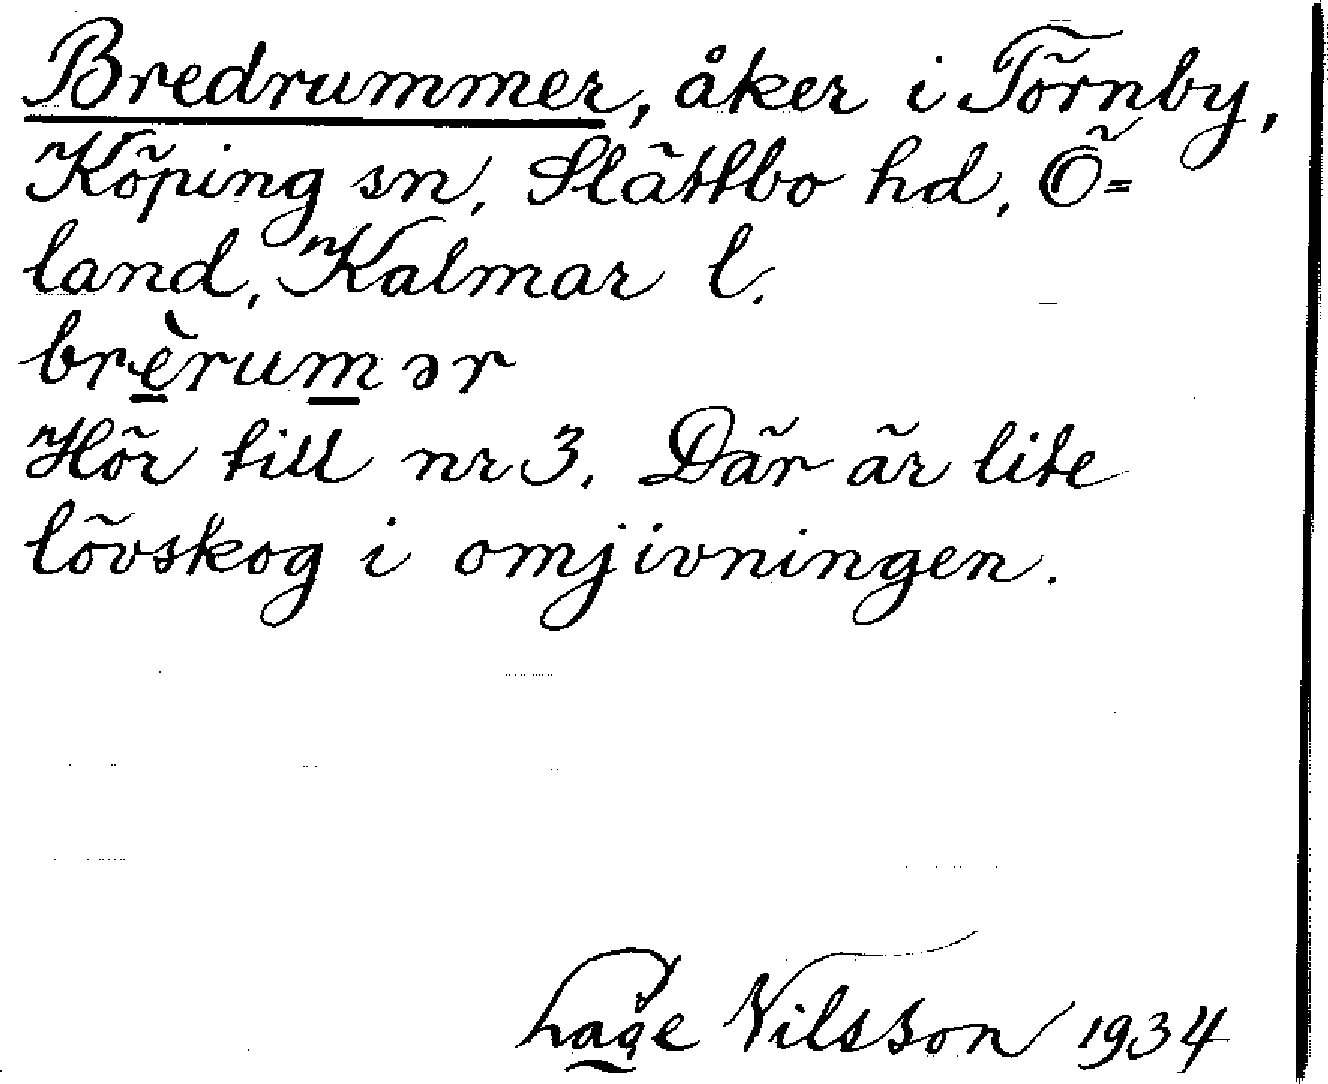 Bredrummer, åker i Törnby,
Köping sn, Slättbo hd, Ö=
land, Kalmar l.
brèrumər
Hör till nr 3. Där är lite
lövskog i omjivningen.
Lage Nilsson 1934